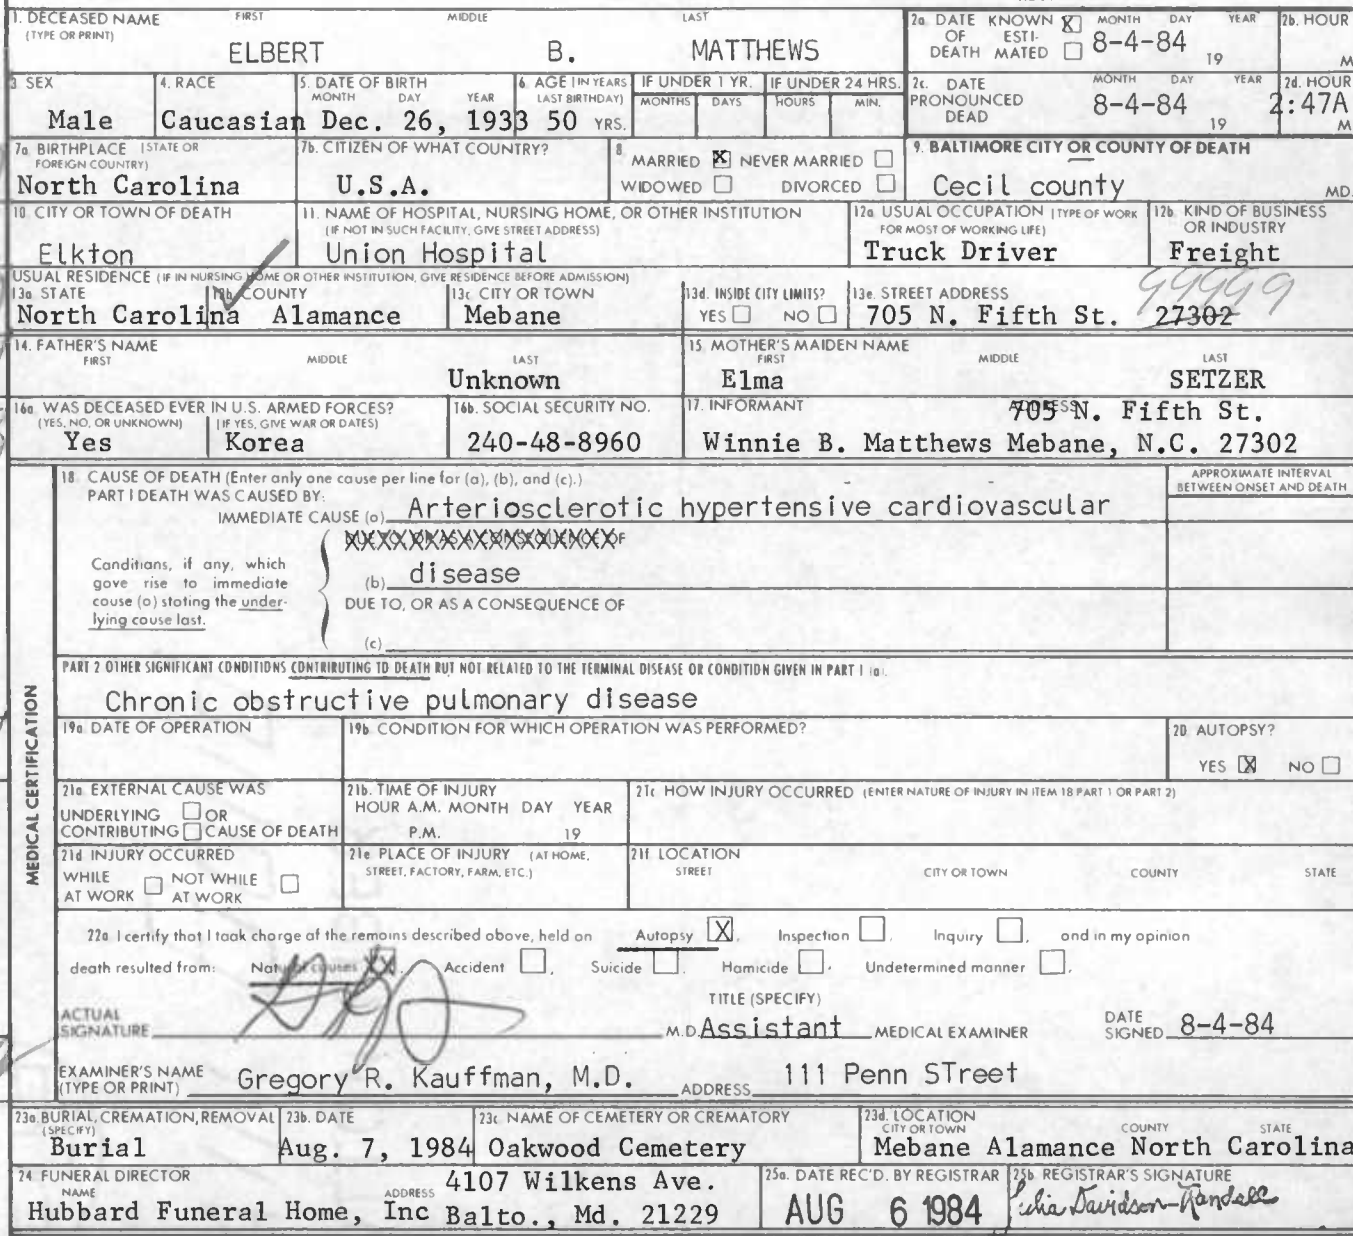 1. DECEASED NAME FIRST MIDDLE LAST
(TYPE OR PRINT)
ELBERT B. MATTHEWS
2a. DATE KNOWN [X] MONTH DAY YEAR
OF ESTI-
DEATH MATED 8-4-84 19
2b. HOUR
M
3 SEX
Male
4. RACE
Caucasian
5. DATE OF BIRTH
MONTH DAY YEAR
Dec. 26, 1933
6. AGE (IN YEARS
LAST BIRTHDAY)
50 YRS.
IF UNDER 1 YR.
MONTHS DAYS
IF UNDER 24 HRS.
HOURS MIN.
2c. DATE MONTH DAY YEAR
PRONOUNCED
DEAD 8-4-84 19
2d. HOUR
2:47A
M
7a. BIRTHPLACE (STATE OR
FOREIGN COUNTRY)
North Carolina
7b. CITIZEN OF WHAT COUNTRY?
U.S.A.
8 MARRIED [X] NEVER MARRIED
WIDOWED DIVORCED
9. BALTIMORE CITY OR COUNTY OF DEATH
Cecil county MD.
10. CITY OR TOWN OF DEATH
Elkton
11. NAME OF HOSPITAL, NURSING HOME, OR OTHER INSTITUTION
(IF NOT IN SUCH FACILITY, GIVE STREET ADDRESS)
Union Hospital
12a. USUAL OCCUPATION (TYPE OF WORK
FOR MOST OF WORKING LIFE)
Truck Driver
12b. KIND OF BUSINESS
OR INDUSTRY
Freight
USUAL RESIDENCE (IF IN NURSING HOME OR OTHER INSTITUTION, GIVE RESIDENCE BEFORE ADMISSION)
13a. STATE
North Carolina
13b. COUNTY
Alamance
13c. CITY OR TOWN
Mebane
13d. INSIDE CITY LIMITS?
YES NO
13e. STREET ADDRESS
99999
705 N. Fifth St. 27302
14. FATHER'S NAME
FIRST MIDDLE LAST
Unknown
15. MOTHER'S MAIDEN NAME
FIRST MIDDLE LAST
Elma SETZER
16a. WAS DECEASED EVER IN U.S. ARMED FORCES?
(YES, NO, OR UNKNOWN) (IF YES, GIVE WAR OR DATES)
Yes Korea
16b. SOCIAL SECURITY NO.
240-48-8960
17. INFORMANT ADDRESS
705 N. Fifth St.
Winnie B. Matthews Mebane, N.C. 27302
MEDICAL CERTIFICATION
18. CAUSE OF DEATH (Enter only one cause per line for (a), (b), and (c).)
PART I DEATH WAS CAUSED BY:
IMMEDIATE CAUSE (a) Arteriosclerotic hypertensive cardiovascular
APPROXIMATE INTERVAL
BETWEEN ONSET AND DEATH
DUE TO, OR AS A CONSEQUENCE OF
Conditions, if any, which
gave rise to immediate
cause (a) stating the under-
lying cause last.
(b) disease
DUE TO, OR AS A CONSEQUENCE OF
(c)
PART 2 OTHER SIGNIFICANT CONDITIONS CONTRIBUTING TO DEATH BUT NOT RELATED TO THE TERMINAL DISEASE OR CONDITION GIVEN IN PART 1 (a).
Chronic obstructive pulmonary disease
19a. DATE OF OPERATION
19b. CONDITION FOR WHICH OPERATION WAS PERFORMED?
20. AUTOPSY?
YES [X] NO
21a. EXTERNAL CAUSE WAS
UNDERLYING OR
CONTRIBUTING CAUSE OF DEATH
21b. TIME OF INJURY
HOUR A.M. MONTH DAY YEAR
P.M. 19
21c. HOW INJURY OCCURRED (ENTER NATURE OF INJURY IN ITEM 18 PART 1 OR PART 2)
21d. INJURY OCCURRED
WHILE NOT WHILE
AT WORK AT WORK
21e. PLACE OF INJURY (AT HOME,
STREET, FACTORY, FARM, ETC.)
21f. LOCATION
STREET CITY OR TOWN COUNTY STATE
22a. I certify that I took charge of the remains described above, held on Autopsy [X], Inspection, Inquiry, and in my opinion
death resulted from: Natural causes [XX], Accident, Suicide, Homicide, Undetermined manner.
TITLE (SPECIFY)
ACTUAL
SIGNATURE M.D. Assistant MEDICAL EXAMINER
DATE
SIGNED 8-4-84
EXAMINER'S NAME
(TYPE OR PRINT) Gregory R. Kauffman, M.D. ADDRESS 111 Penn STreet
23a. BURIAL, CREMATION, REMOVAL
(SPECIFY)
Burial
23b. DATE
Aug. 7, 1984
23c. NAME OF CEMETERY OR CREMATORY
Oakwood Cemetery
23d. LOCATION
CITY OR TOWN COUNTY STATE
Mebane Alamance North Carolina
24. FUNERAL DIRECTOR
NAME ADDRESS
4107 Wilkens Ave.
Hubbard Funeral Home, Inc Balto., Md. 21229
25a. DATE REC'D. BY REGISTRAR
AUG 6 1984
25b. REGISTRAR'S SIGNATURE
Davidson-Randall